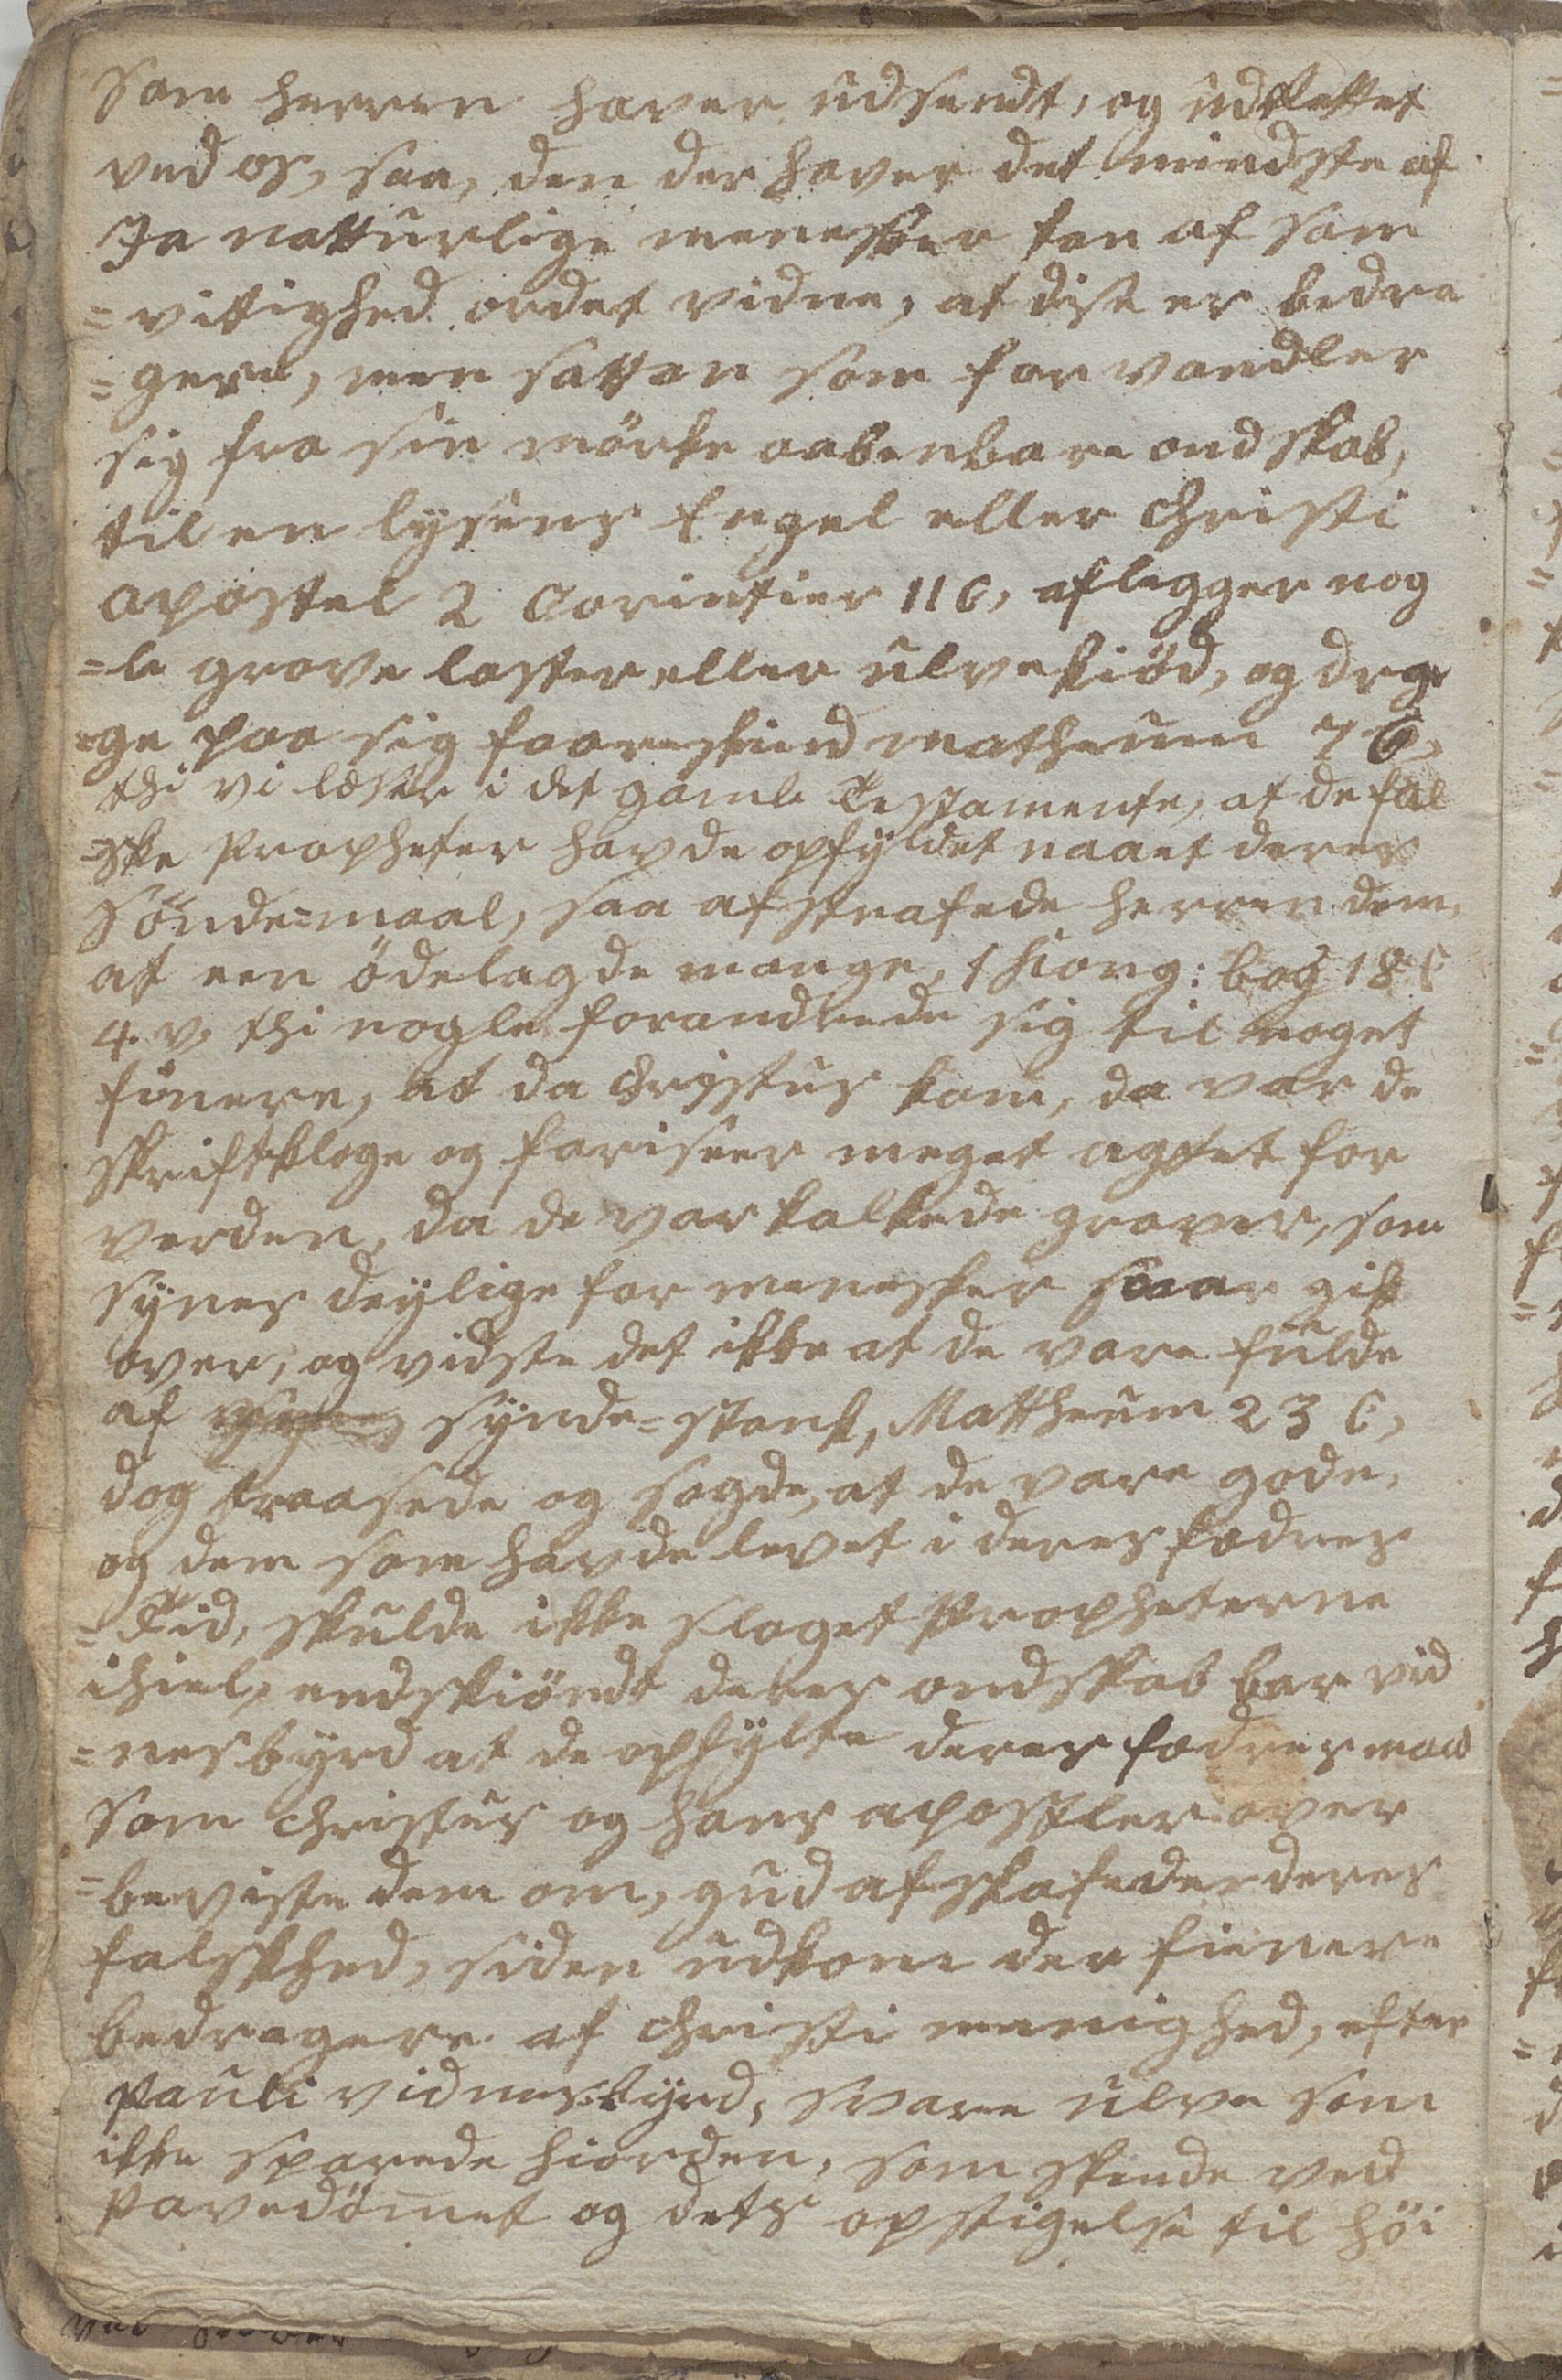 Som herren haver udsendt, og udrettet
ved os, saa, den der haver det mindste af
Ja natturlige menesker kan af sam
=vittighed ordet vidne, at dise er bedra
=gere, men sattan som forvandler
sig fra sin mörke aabenbare ondskab,
til en lysens Engel eller Christi
apostel 2 Corintier 11 C, aflegger nog
=le grove laster eller ulvekiöd, og drge
=ge paa sig faareskind matheum 7 C,
thi vi læser i det gamle Testamente, at de fal
=ske Propheter havde opfyldet naaet deres
Sönde=maal, saa afstrafede herren dem,
at een ödelagde mange, 1 Kong: bog 18 C
4. v, thi nogle forandrede sig til noget
finere, at da Christus kom, da var de
skriftkloge og fariseer meget agttet for
verden, da de var kalkede graver, som
synes deylige for menesker som gik
over, og vidste det ikke at de vare fulde
af synde=stank, Mattheum 23 C,
dog praasede og sagde, at de vare gode,
og dem som havde levet i deres fædres
=Tid, skulde ikke slaget Propheterne
ihiel, endskiöndt deres ondskab bar vid
=nesbyrd at de opfylte deres fædres maal
som Christus og hans apostler over
=beviste dem om, gud afskafede deres
falskhed, siden udkom der finere
bedragere af Christi menighed, efter
Pauli vidnesbyrd, svare ulve som
ikke sparede hiorden, som skeede ved
Pavedömet og dets opstigelse til höi